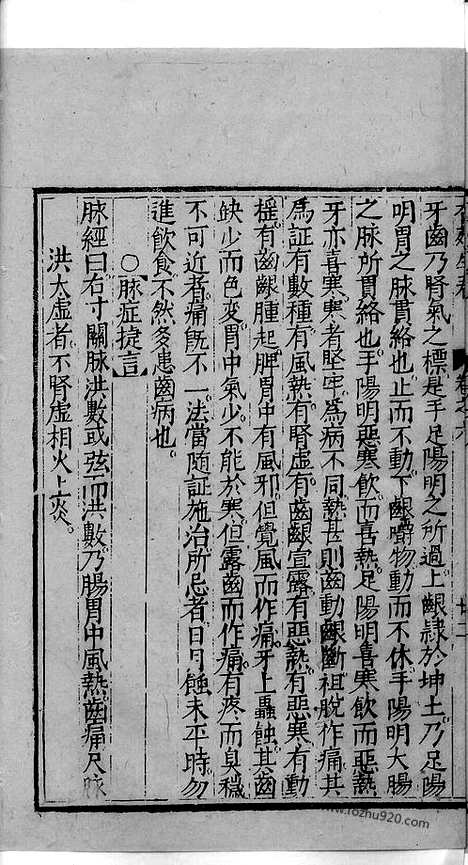 牙齒乃腎氣之標是手足陽明之所過上齦隷於坤土乃足陽
明胃之脉貫絡也止而不動下齦嚼物動而不休手陽明大腸
之脉所貫絡也手陽明惡寒飲而喜熱足陽明喜寒飲而惡熱
牙亦喜寒寒者堅牢為病不同熱甚則齒動齦斷袒脫作痛其
為証有數種有風熱有腎虚有齒齦宣露有惡熱有惡寒有動
摇有齒齦腫起脾胃中有風邪但覺風而作痛牙上蟲蝕其齒
缺少而色变胃中氣少不能於寒但露齒而作痛有疼而臭穢
不可近者痛既不一法當随証施治所忌者日月蝕未平時勿
進飲食不然多患齒病也
○【脉症捷言】
脉經曰右寸關脉洪數或弦而洪數乃腸胃中風熱齒痛尺脉
洪大虚者不腎虚相火上炎
www.lozhu920.com